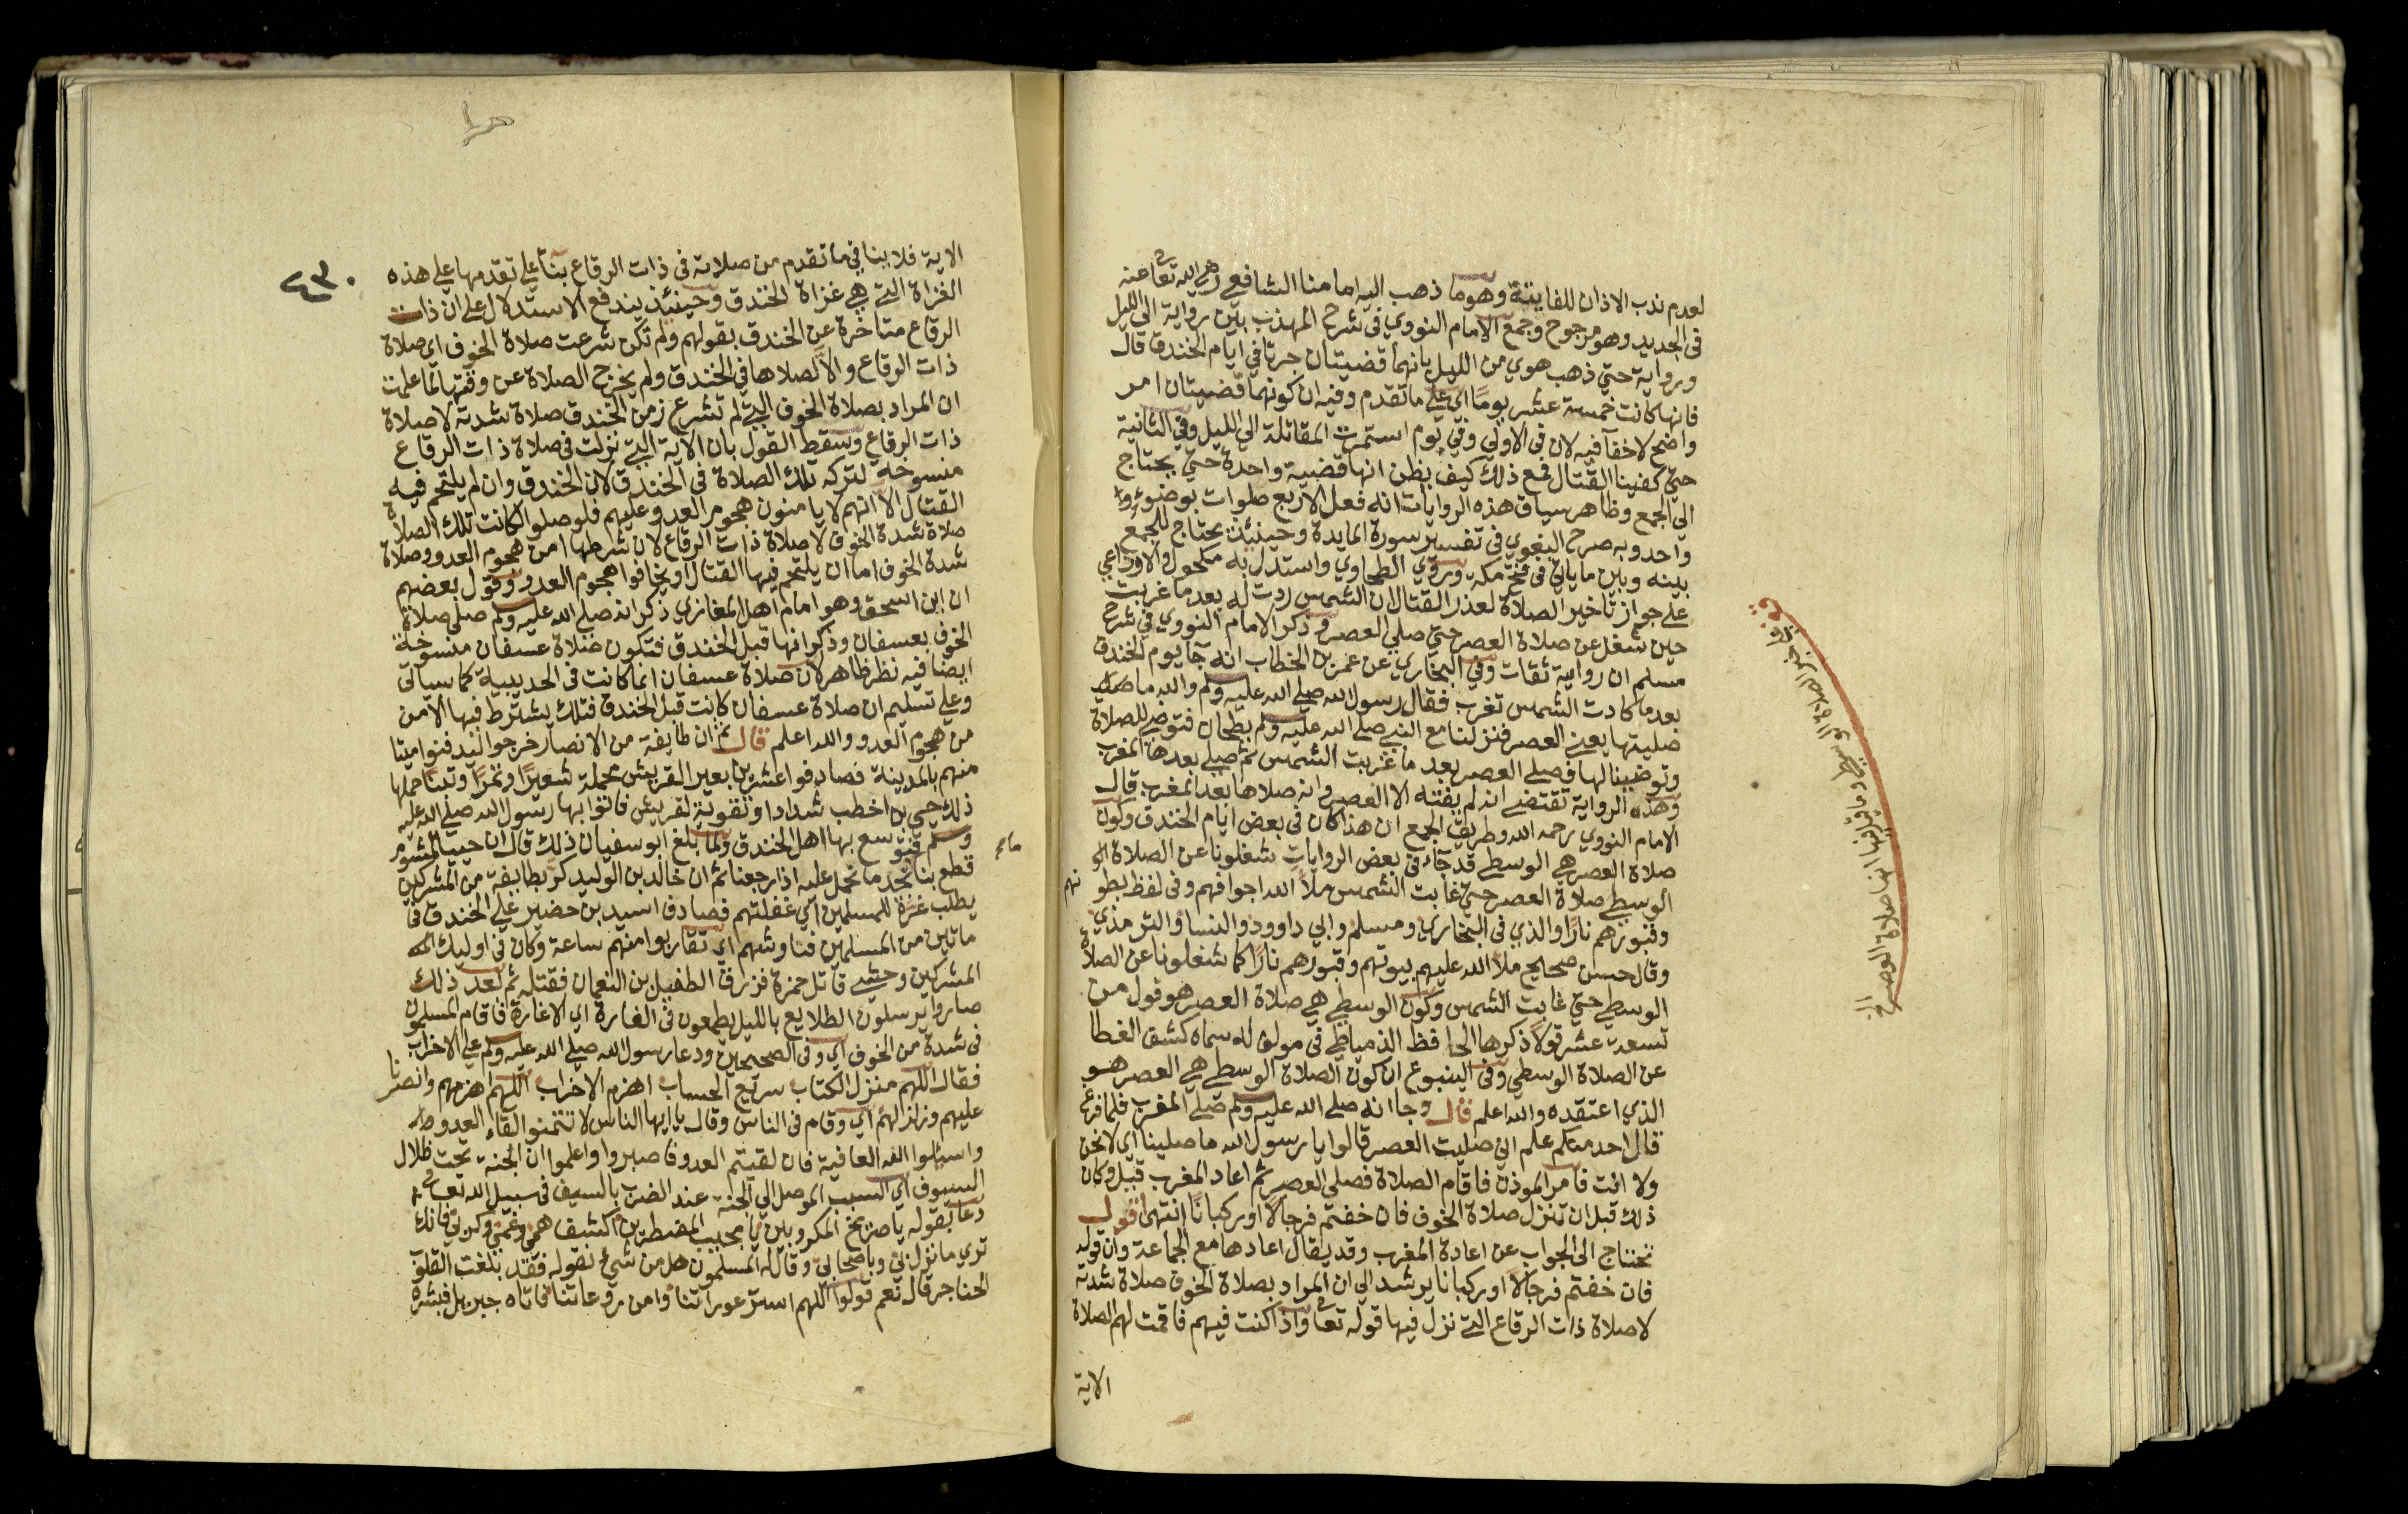 لعدم ندب الاذان للفايتة وهو ما ذهب اليه امامنا الشافعي رضي الله تعا عنه
في الجديد وهو مرجوح وجمع الامام النووي في شرح المهذب بين رواية الي الليل
ورواية حتي ذهب هوي من الليل بانهما قضيتان جرتا في ايام الخندق قال
فانها كانت خمسة عشر يوما اي علي ما تقدم وفيه ان كونهما قضيتان امر
واضح لا خفآ فيه لان في الاولي وفي يوم استمرت المقاتلة الي الليل وفي الثانية
حتي كفينا القتال فمع ذلك كيف يظن انها قضية واحدة حتي يحتاج
الي الجمع وظاهر سياق هذه الروايات انه فعل الاربع صلوات بوضوء
واحد وبه صرح البغوي في تفسير سورة المايدة وحينئذ يحتاج للجمع
بينه وبين ما ياتي في فتح مكة وروي الطحاوي واستدل به مكحول والاوزاعي
علي جواز تاخير الصلاة لعذر القتال ان الشمس ردت له بعد ما غربت
حين شغل عن صلاة العصر حتي صلي العصر وذكر الامام النووي في شرح
مسلم ان رواته ثقات وفي البخاري عن عمر بن الخطاب انه جا يوم الخندق
بعد ما كادت الشمس تغرب فقال رسول الله صلي الله عليه وسلم والله ما صليت
صليتها يعني العصر فنزلنا مع النبي صلي الله عليه وسلم بطحان فتوضا للصلاة
وتوضينا لها فصلي العصر بعد ما غربت الشمس ثم صلي بعدها المغرب
وهذه الرواية تقتضي انه لم يفته الا العصر وانه صلاها بعد المغرب قال
الامام النووي رحمه الله وطريق الجمع ان هذا كان في بعض ايام الخندق وكون
صلاة العصر هي الوسطي قد جآء في بعض الروايات شغلونا عن الصلاة
الوسطي صلاة العصر حتي غابت الشمس ملأ الله اجوافهم وفي لفظ بطونهم
وقبورهم نارا والذي في البخاري ومسلم وابي داوود والنسا والترمذي
وقال حسن صحيح ملأ الله عليهم بيوتهم وقبورهم نارا كما شغلونا عن الصلاة
الوسطي حتي غابت الشمس وكون الوسطي هي صلاة العصر هو قول من
تسعة عشر قولا ذكرها الحافظ الدمياطي في مولف له سماه كشف الغطا
عن الصلاة الوسطي وفي الينبوع ان كون الصلاة الوسطي هي العصر هو
الذي اعتقده والله اعلم قال وجا انه صلي الله عليه وسلم صلي المغرب فلما فرغ
قال احد منكم علم اني صليت العصر قالوا يا رسول الله ما صلينا اي لا نحن
ولا انت فامر الموذن فاقام الصلاة فصلي العصر ثم اعاد المغرب قيل وكان
ذلك قبل ان تنزل صلاة الخوف فان خفتم فرجالا او ركبانا انتهي اقول
نحتاج الي الجواب عن اعادة المغرب وقد يقال اعادها مع الجماعة وان قوله
فان خفتم فرجالا او ركبانا يرشد الي ان المراد بصلاة الخوف صلاة شدته
لا صلاة ذات الرقاع التي نزل فيها قوله تعا واذا كنت فيهم فاقمت لهم الصلاة
الاية
الوسطي وما قيل فيها انها صلاة العصر الخ
الاية فلا ينافي ما تقدم من صلاته في ذات الرقاع بنآ علي تقدمها علي هذه
الغزاة التي هي غزاة الخندق وحينئذ يندفع الاستدلال علي ان ذات
الرقاع متاخرة عن الخندق بقولهم ولم تكن شرعت صلاة الخوف اي صلاة
ذات الرقاع والا لصلاها في الخندق ولم يخرج الصلاة عن وقتها لما علمت
ان المراد بصلاة الخوف التي لم تشرع زمن الخندق صلاة شدته لا صلاة
ذات الرقاع وسقط القول بان الاية التي نزلت في صلاة ذات الرقاع
منسوخة لتركه تلك الصلاة في الخندق لان الخندق وان لم يلتحم فيه
القتال الا انهم لا يامنون هجوم العدو عليهم فلو صلوا لكانت تلك الصلاة
صلاة شدة الخوف لا صلاة ذات الرقاع لان شرطها امن هجوم العدو وصلاة
شدة الخوف اما ان يلتحم فيها القتال او يخافوا هجوم العدو وقول بعضهم
ان ابن اسحق وهو امام اهل المغازي ذكر انه صلي الله عليه وسلم صلي صلاة
الخوف بعسفان وذكر انها قبل الخندق فتكون صلاة عسفان منسوخة
ايضا فيه نظر ظاهر لان صلاة عسفان انما كانت في الحديبية كما سياتي
وعلي تسليم ان صلاة عسفان كانت قبل الخندق فتلك يشترط فيها الامن
من هجوم العدو والله اعلم قال ثم ان طايفة من الانصار خرجوا ليدفنوا ميتا
منهم بالمدينة فصادفوا عشرين بعير القريش محملة شعيرا وتمرا وتبنا حملها
ذلك حيي بن اخطب شدادا وتقوية لقريش فاتوا بها رسول الله صلي الله عليه
وسلم فتوسع بها اهل الخندق ولما بلغ ابو سفيان ذلك قال ان حييا لمشوم
قطع بنا نجد ما نحمل عليه اذا رجعنا ثم ان خالد بن الوليد كر بطايفة من المشركين
يطلب غرة للمسلمين اي غفلتهم فصادف اسيد بن حضير علي الخندق في
ماتين من المسلمين فناوشهم اي تقاربوا منهم ساعة وكان في اوليك
المشركين وحشي قاتل حمزة فزرق الطفيل بن النعمان فقتله ثم بعد ذلك
صاروا يرسلون الطلايع بالليل يطمعون في الغارة اي الاغارة فاقام المسلمون
في شدة من الخوف اي وفي الصحيحين ودعا رسول الله صلي الله عليه وسلم علي الاحزاب
فقال اللهم منزل الكتاب سريع الحساب اهزم الاحزاب اللهم اهزمهم وانصرنا
عليهم وزلزلهم اي وقام في الناس وقال يا ايها الناس لا تتمنوا لقاء العدو
واسئلوا الله العافية فان لقيتم العدو فاصبروا واعلموا ان الجنة تحت ظلال
السيوف اي السبب الموصل الي الجنة عند الضرب بالسيف في سبيل الله تعا
دعا بقوله يا صريخ المكروبين يا مجيب المضطرين اكشف همي وغمي وكربي فانك
تري ما نزل بي وباصحابي وقال له المسلمون هل من شيء نقوله فقد بلغت القلوب
الحناجر قال نعم قولوا اللهم استر عوراتنا وامن روعاتنا فاتاه جبريل فبشره